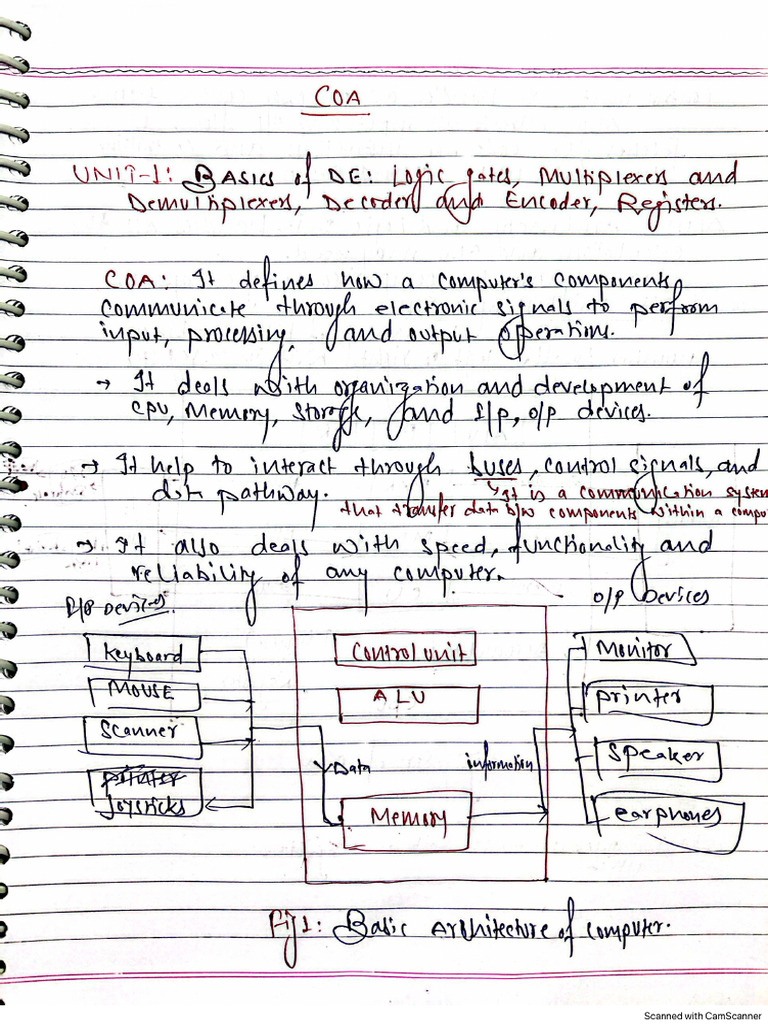 COA
UNIT-1: BASICS of DE: Logic gates, Multiplexers and
Demultiplexers, Decoder and Encoder, Registers.
COA: It defines how a computer's components
communicate through electronic signals to perfrom
input, processing, and output operations.
→ It deals with organization and development of
CPU, Memory, Storage, and I/p, o/p devices.
→ It help to interact through buses, control signals, and
data pathway. ↳ It is a communication system
that transfer data b/w components within a compu
→ It also deals with speed, functionality and
reliability of any computer.
I/P Devices. O/P Devices
Keyboard Control unit Monitor
MOUSE ALU printer
Scanner Speaker
Data information
Joysticks Memory earphones
Fig 1: Basic Architecture of computer.
Scanned with CamScanner